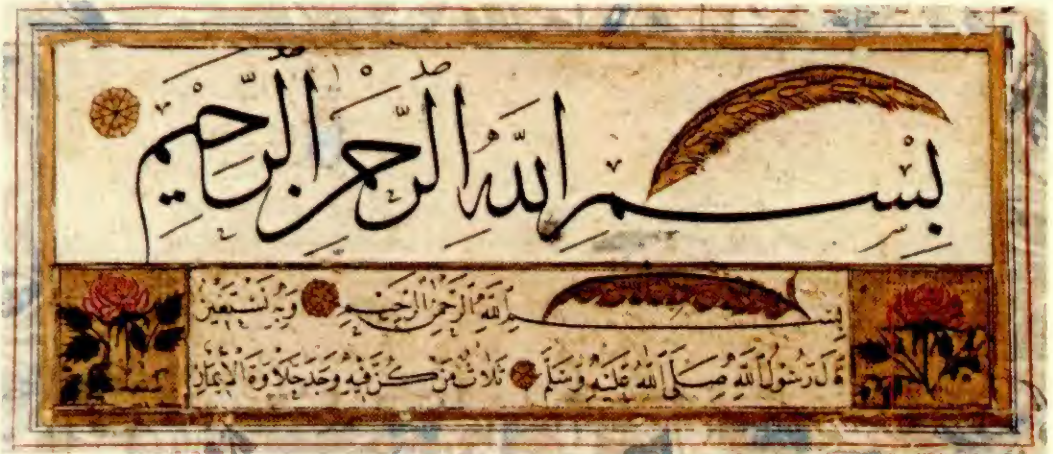 بِسْمِ اللهِ الرَّحْمٰنِ الرَّحِيْمِ
بِسْمِ اللهِ الرَّحْمٰنِ الرَّحِيْمِ وَبِهِ نَسْتَعِيْنُ
قَالَ رَسُولُ اللهِ صَلَّى اللهُ عَلَيْهِ وَسَلَّمَ ثَلَاثٌ مَنْ كُنَّ فِيْهِ وَجَدَ حَلَاوَةَ الْاِيْمَانِ